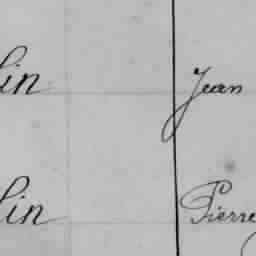 lin Jean
lin Pierre